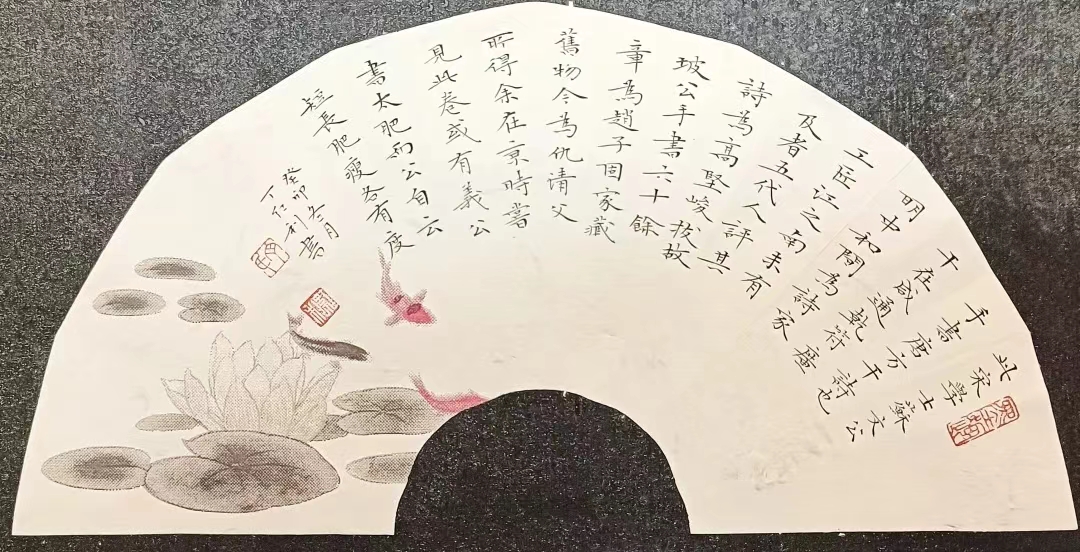 此宋學士蘇文公
手書唐方干詩也
干在咸通乾符廣
明中和間為詩家
工匠江之南未有
及者五代人評其
詩為高堅峻拔故
坡公手書六十餘
章為趙子固家藏
舊物今為仇清父
所得余在京時嘗
見此卷或有義公
書太肥而公自云
短長肥瘦各有度
癸卯冬月
丁仁利書